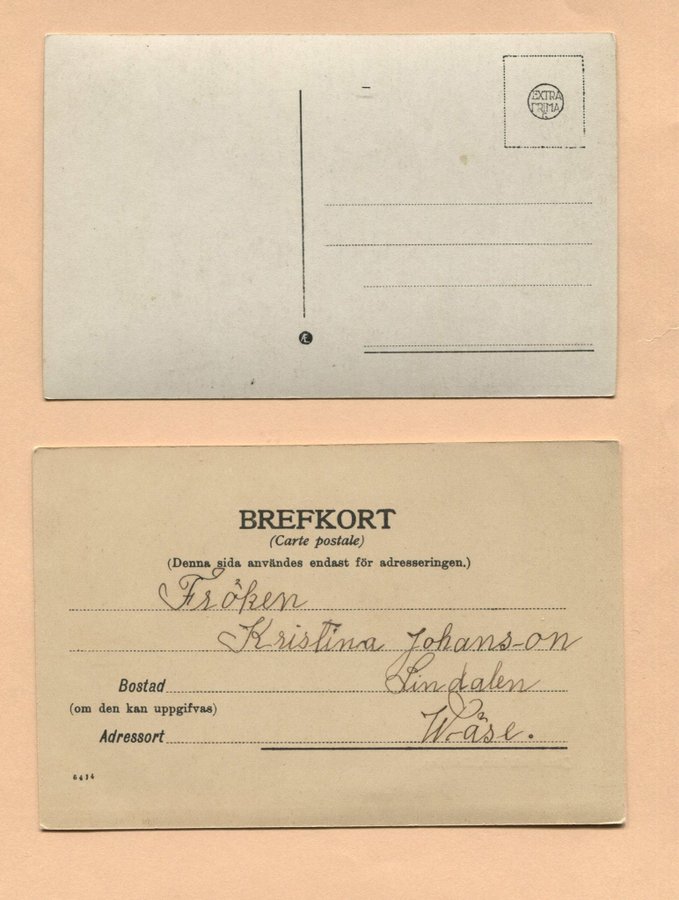 EXTRA
PRIMA
Æ
BREFKORT
(Carte postale)
(Denna sida användes endast för adresseringen.)
Fröken
Kristina Johans-on
Bostad Lindalen
(om den kan uppgifvas)
Adressort Wäse.
6414